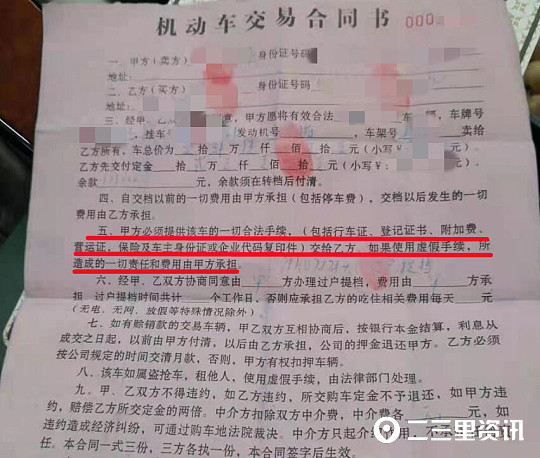 机动车交易合同书 000
一、甲方（卖方） 身份证号码
地址：
二、乙方（买方） 身份证号码
地址：
三、经甲、乙 意，甲方愿将有效合法 车 辆，车牌号
，挂车 发动机号 ，车架号 卖给
乙方所有，车总价为 拾 万 仟 佰 拾 元（小写￥： ）
乙方先交付定金 拾 万 仟 佰 拾 元（小写￥： ）
余款 元，余款须在转档后付清。
四、自交档以前的一切费用由甲方承担（包括停车费），交档以后发生的一切
费用由乙方承担。
五、甲方必须提供该车的一切合法手续，（包括行车证、登记证书、附加费、
营运证，保险及车主身份证或企业代码复印件）交给乙方。如果使用虚假手续，所
造成的一切责任和费用由甲方承担。
六、经甲、乙双方协商同意由 方办理过户提档，费用由 方承
担，过户提档时间共计 个工作日，否则应承担乙方的吃住相关费用每天 元，
（无电、无网、放假等特殊情况除外）
七、如有赊销款的交易车辆，甲乙双方互相协商后，按银行本金结算，利息从
成交之日起，以前由甲方付清，以后由乙方承担，公司的押金退还甲方。乙方必须
按公司规定的时间交清月款，否则，甲方有权扣押车辆。
八、该车如属盗抢车，租他人，使用虚假手续，由法律部门处理。
九、甲、乙双方不得违约，如乙方违约，所交购车定金不予退还，如甲方违
约，赔偿乙方所交定金的两倍。中介方扣除双方中介费，中介费各 元，如
违约造成经济纠纷，可通过购车地法院裁决。中介方只起介绍作用，不承
任。本合同一式三份，三方各执一份，本合同签字后生效。
二三里资讯